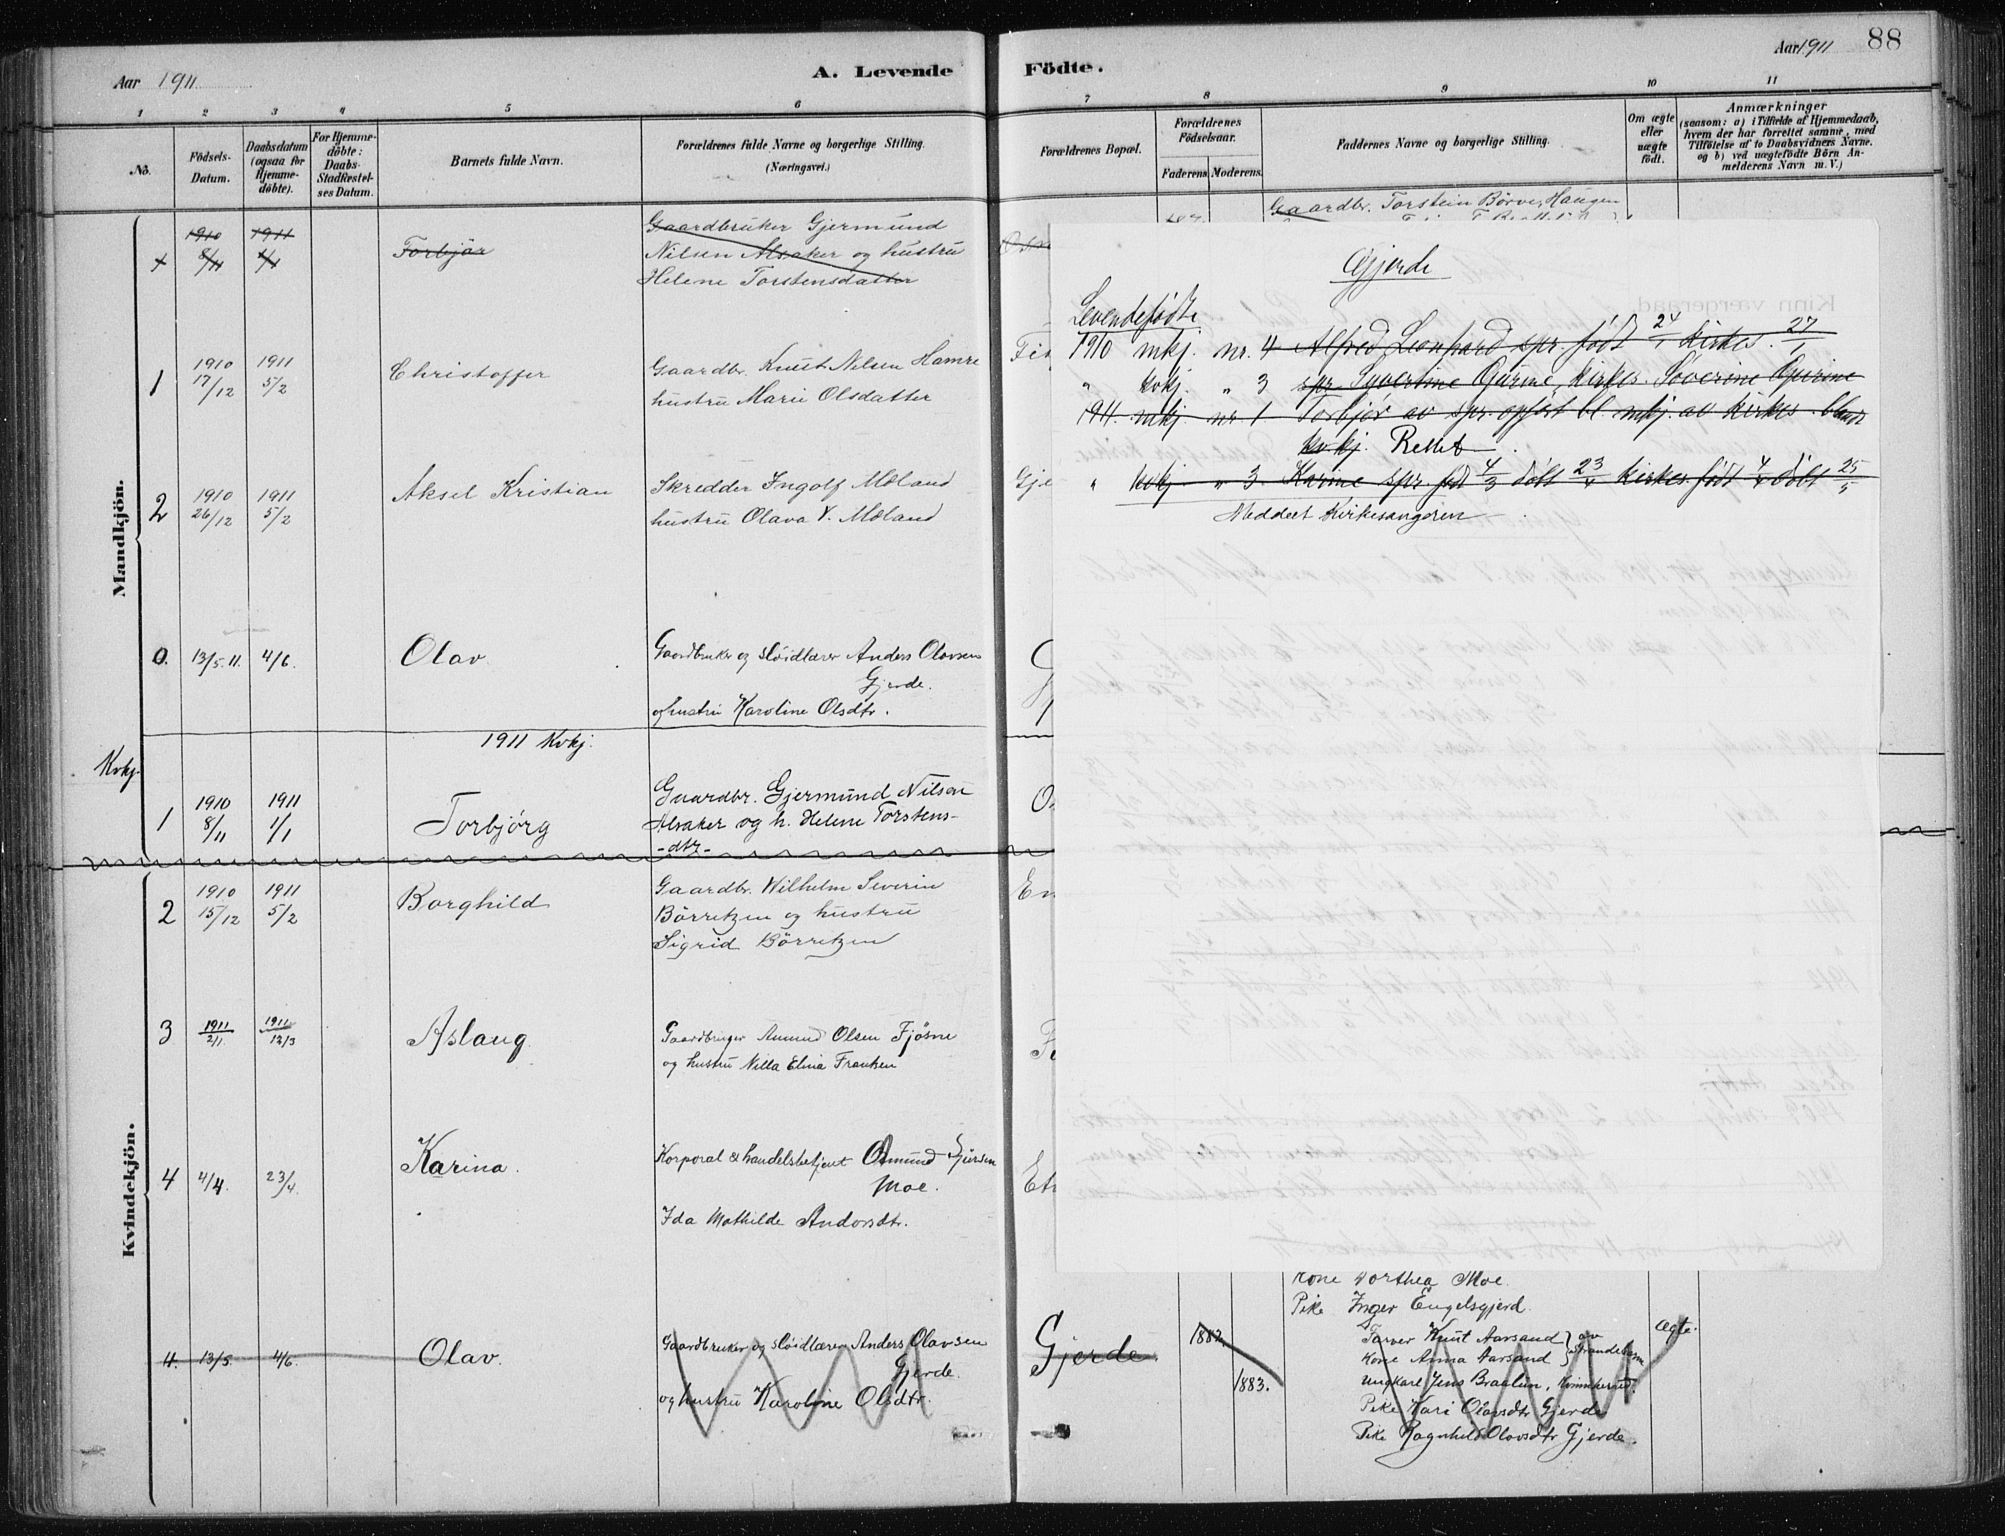 Aar 1911
A. Levende
1 2 3 4 5 6
No.
Födsels-Datum.
Daabsdatum (ogsaa for Hjemme-döbte).
For Hjemme-döbte: Daabs-Stadfestel-ses Datum.
Barnets fulde Navn.
Forældrenes fulde Navne og borgerlige Stilling.
(Næringsvei.)
Mandkjön.
1910 1911 Gaardbruker Gjermund
8/11 1/1 Torbjör Nilsen Alsaker og hustru
Helene Torstensdatter
1910 1911
1 17/12 5/2 Christoffer Gaardbr. Knut Nilsen Hamre
hustru Marie Olsdatter
1910 1911
2 26/12 5/2 Aksel Kristian Skredder Ingolf Mœland
hustru Olava V. Mœland
0. 13/5.11. 4/6 Olav Gaardbruker og slöidlærer Anders Olavsen
Gjerde.
og hustru Karoline Olsdtr.
1911 Kvkj.
Kvkj.
1910 1911
1 8/11 1/1 Torbjörg Gaardbr. Gjermund Nilsen
Alsaker og h. Helene Torstens-
-dtr-
Kvindekjön.
1910 1911
2 15/12 5/2 Borghild Gaardbr. Wilhelm Severin
Börretzen og hustru
Sigrid Börretzen
3 1911 2/1. 1911 12/3 Aslaug Gaardbruger Amund Olsen Fjösne
og hustru Nilla Elina Frantzen
4 4/4. 23/4. Karina. Korporal & handelsbetjent Osmund Sjursen
Moe.
Ida Mathilde Andersdtr.
4. 13/5. 4/6. Olav. Gaardbruker og slöidlærer Anders Olavsen
Gjerde.
og hustru Karoline Olsdtr.
Födte.
Aar 1911 88
7 8 9 10 11
Forældrenes Bopæl.
Forældrenes Födselsaar.
Faderens. Moderens.
Faddernes Navne og borgerlige Stilling.
Om ægte eller uægte födt.
Anmærkninger
(saasom: a) i Tilfælde af Hjemmedaab,
hvem der har forrettet samme, med
Tilföielse af to Daabsvidners Navne.
og b) ved uægtefödte Börn An-
melderens Navn m. V.)
Gaardbr. Torstein Börve, Haugen
Gjerde
Levendefödte
1910 mkj. nr. 4 Alfred Leonhard spr. födt 24/1 kirkes. 27/1
" kvkj. " 3 spr Syvertine Gurine, kirkes. Soverine Gurine
1911. mkj nr 1. Torbjör av spr. opfört bl mkj. av kirkes. blandt
kvkj. Rettet
" kvkj " 3. Karine spr. föd 4/3 döbt 23/4 kirkes. födt 4/4 döbt 25/5
Meddelt Kirkesangeren
Kone Dorthea Moe.
Pike Inger Engelsgjerd.
Gjerde. 1882. 1883. Farver Knut Aarsand } av
Kone Anna Aarsand } Strandebarm
Ungkarl Jens Braalun,
Pike Kari Olavsdtr Gjerde
Pike Ragnhild Olavsdtr Gjerde.
Ægte.